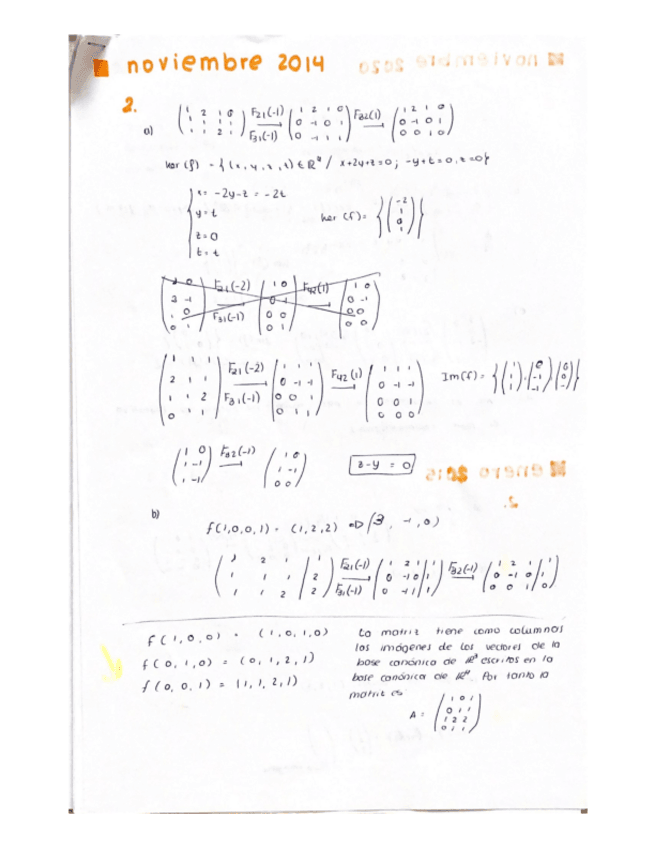 noviembre 2014
2.
a) (1 2 1 0 / 1 1 1 1 / 1 1 2 1) F21(-1) F31(-1) → (1 2 1 0 / 0 -1 0 1 / 0 -1 1 1) F32(1) → (1 2 1 0 / 0 -1 0 1 / 0 0 1 0)
ker (f) = {(x, y, z, t) ∈ R⁴ / x+2y+z=0; -y+t=0, z=0}
x = -2y-z = -2t
y = t
z = 0
t = t
ker (f) = {(-2 / 1 / 0 / 1)}
F21(-2) F31(-1) → (1 0 / 0 -1 / 0 0 / 0 1) F42(1) → (1 0 / 0 -1 / 0 0 / 0 0)
(1 1 1 / 2 1 1 / 1 1 2 / 0 1 1) F21(-2) F31(-1) → (1 1 1 / 0 -1 -1 / 0 0 1 / 0 1 1) F42(1) → (1 1 1 / 0 -1 -1 / 0 0 1 / 0 0 0)
Im(f) = {(1 / 1 / 1), (0 / -1 / -1), (0 / 0 / )}
(1 0 / 1 -1 / 1 -1) F32(-1) → (1 0 / 1 -1 / 0 0)
z - y = 0
b)
f(1,0,0,1) = (1,2,2) ⇒ (3, -1, 0)
( 2 1 | 1 / 1 1 1 | 2 / 1 1 2 | 2) F21(-1) F31(-1) → (1 2 1 | 1 / 0 -1 0 | 1 / 0 -1 1 | 1) F32(-1) → (1 2 1 | 1 / 0 -1 0 | 1 / 0 0 1 | 0)
f(1,0,0) = (1,0,1,0)
f(0,1,0) = (0,1,2,1)
f(0,0,1) = (1,1,2,1)
La matriz tiene como columnas
las imágenes de los vectores de la
base canónica de R³ escritos en la
base canónica de R⁴. Por tanto la
matriz es
A = (1 0 1 / 0 1 1 / 1 2 2 / 0 1 1)